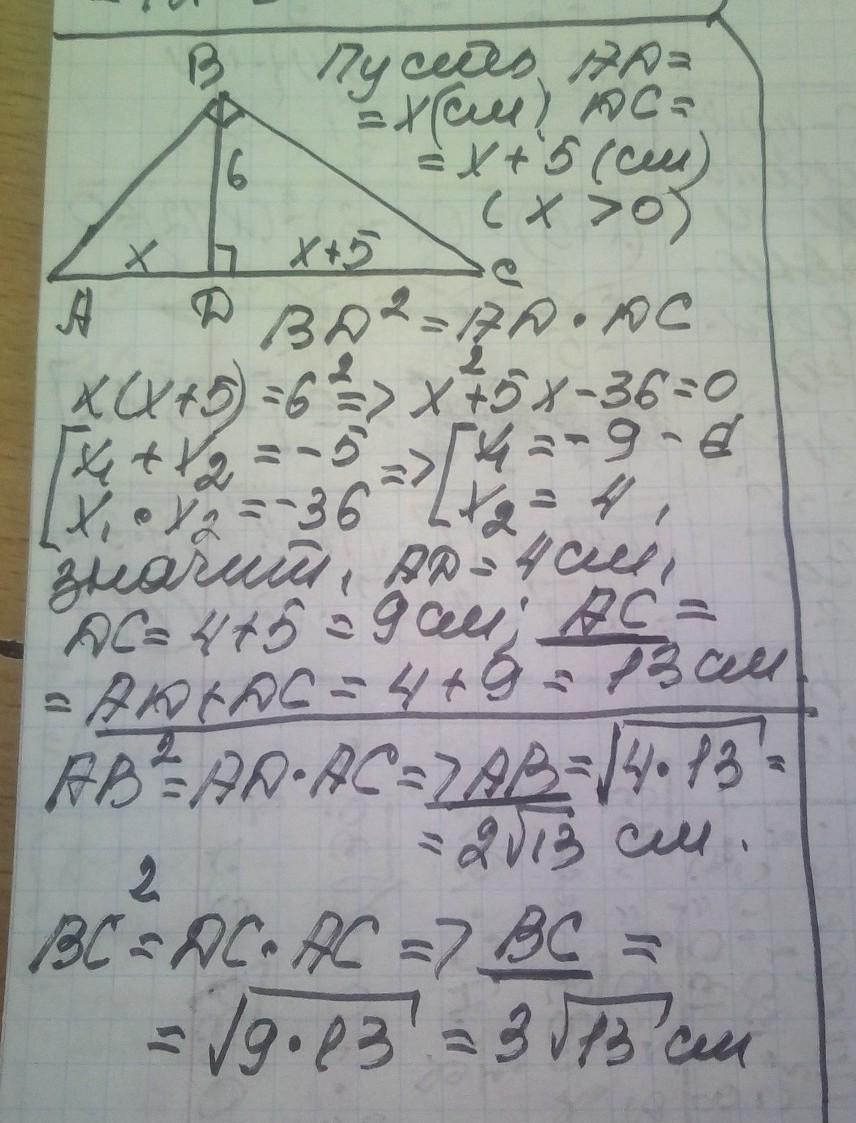 B
Пусть AD=
=x(см), DC=
=x+5(см)
(x>0)
6
x
x+5
A
D
C
BD²=AD·DC
x(x+5)=6²=>x²+5x-36=0
[x₁+x₂=-5=>[x₁=-9-
x₁·x₂=-36 x₂=4,
значит, AD=4см,
DC=4+5=9см; AC=
=AD+DC=4+9=13см
AB²=AD·AC=>AB=√4·13=
=2√13 см.
BC²=DC·AC=>BC=
=√9·13=3√13 см